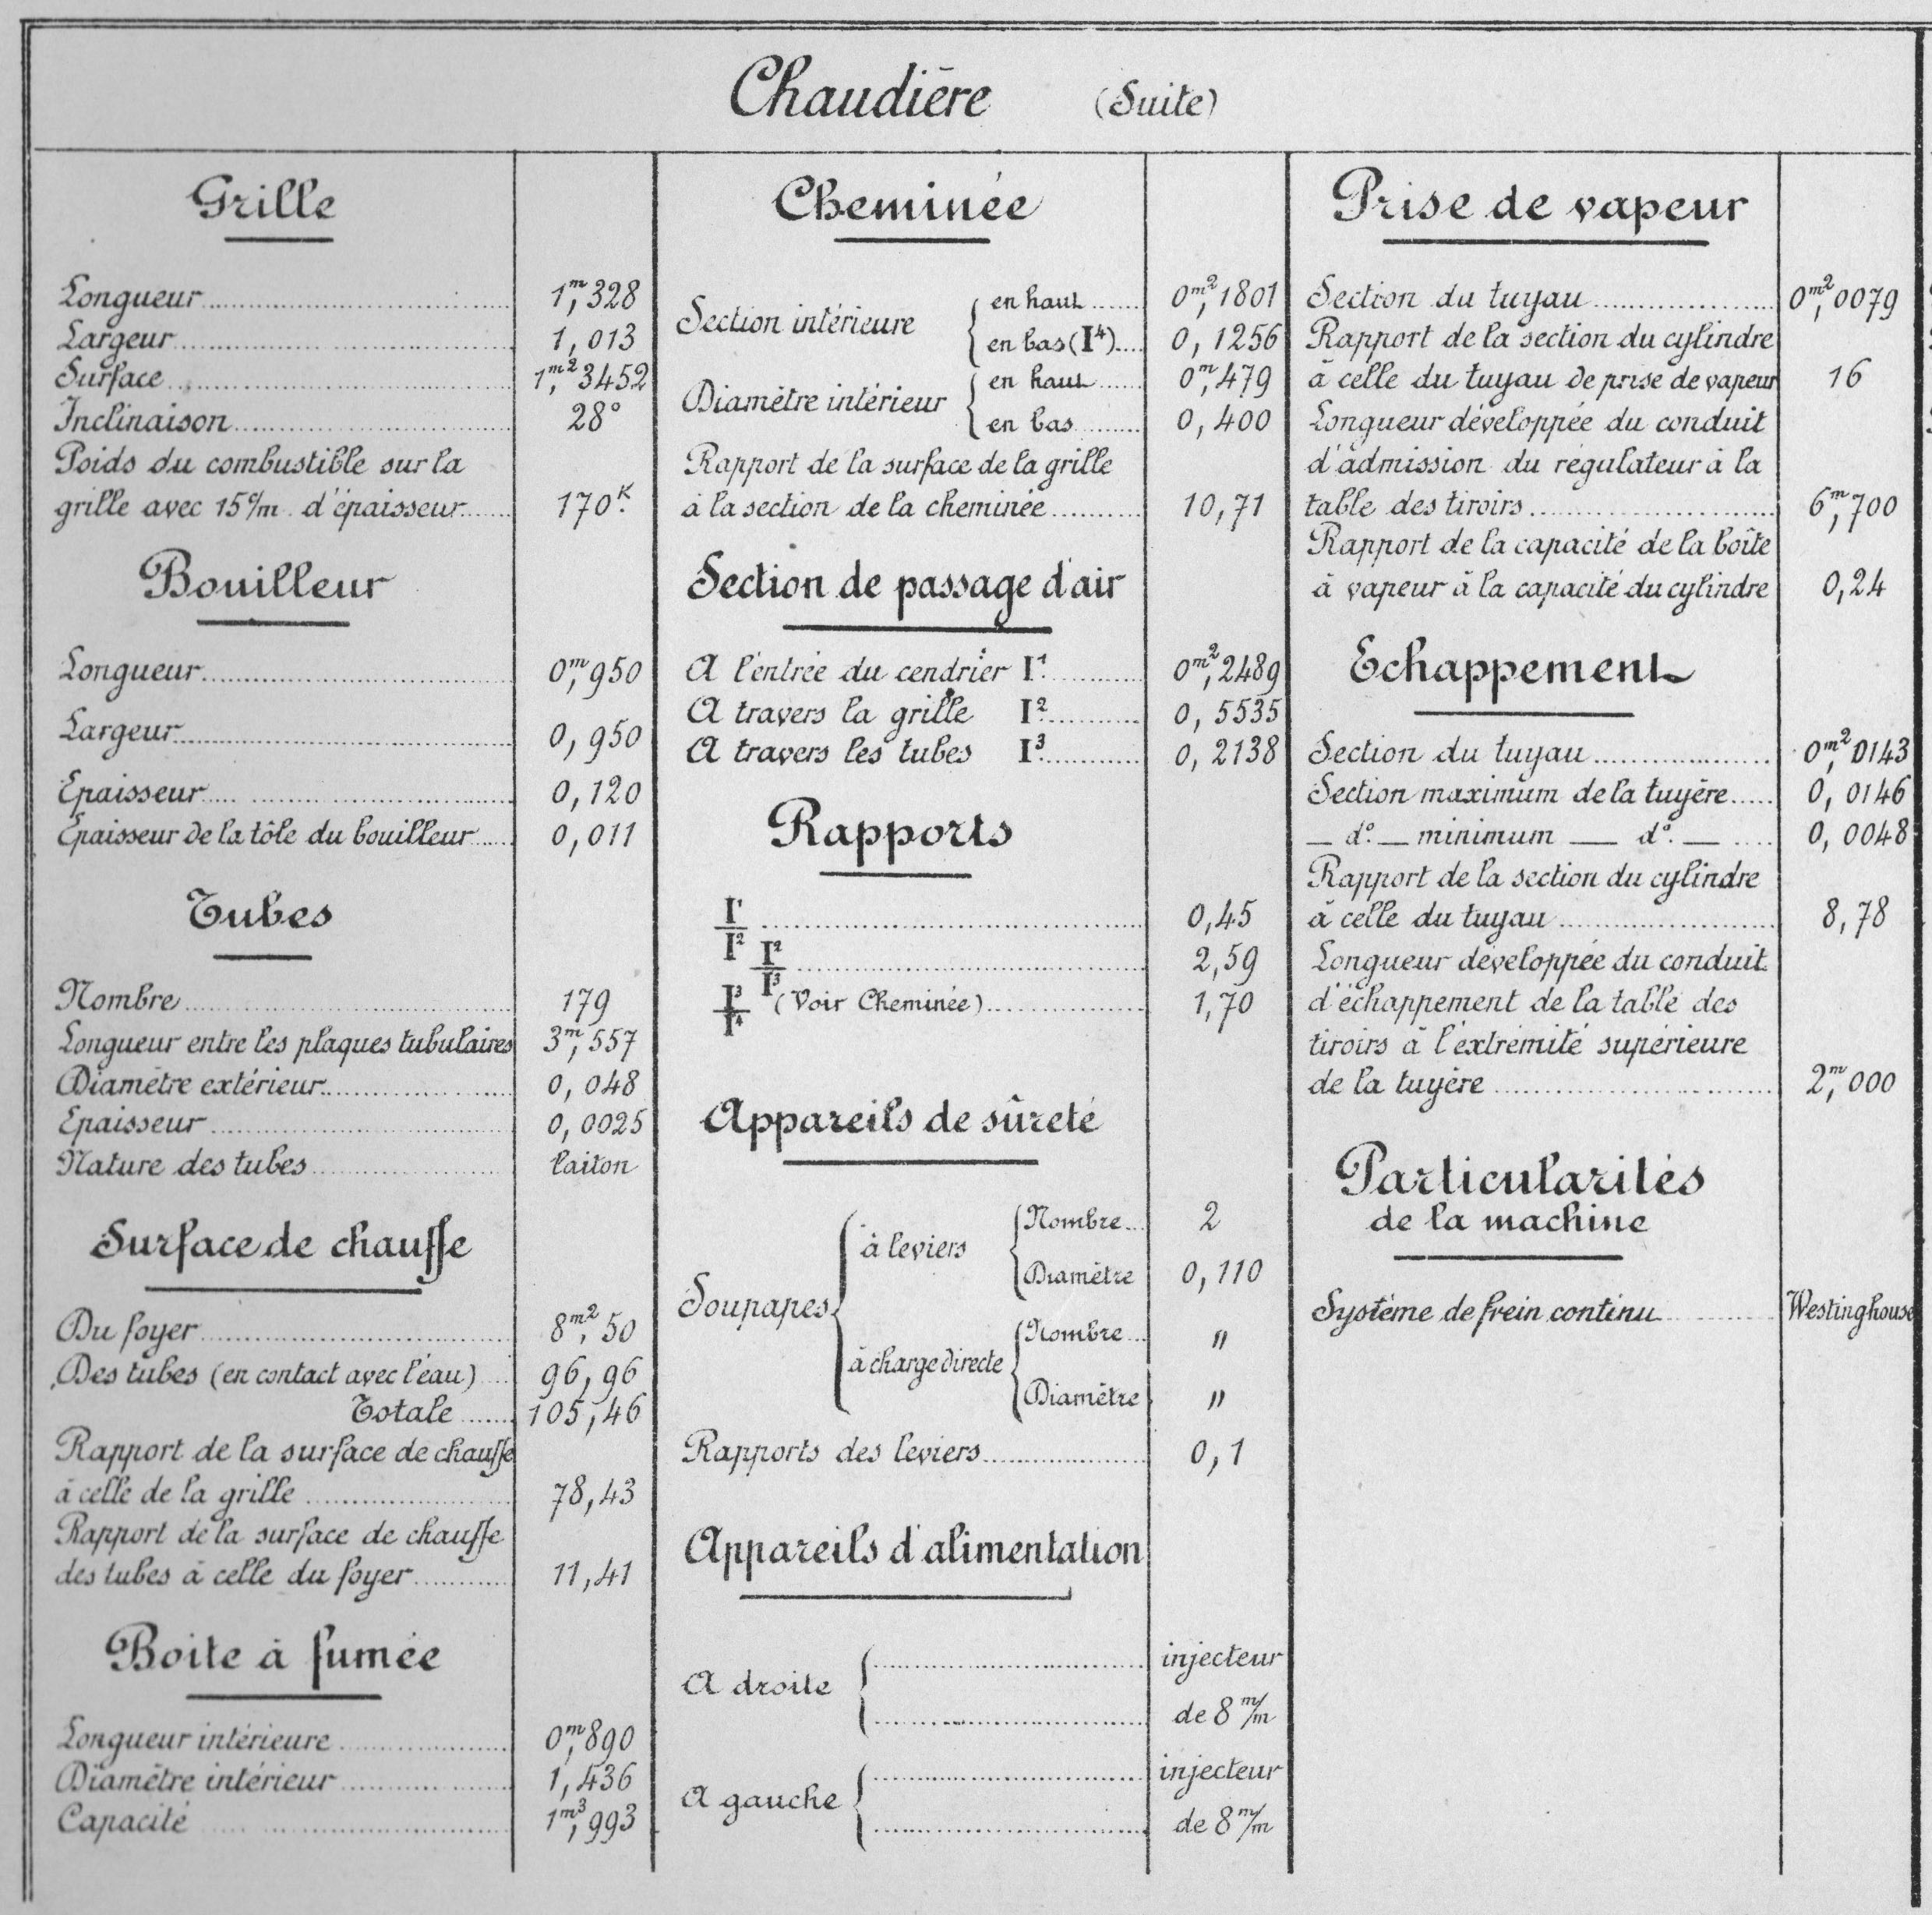 Chaudière (Suite)
Grille
Longueur 1,ᵐ328
Largeur 1,013
Surface 1,ᵐ²3452
Inclinaison 28°
Poids du combustible sur la
grille avec 15 c/m d'épaisseur 170ᴷ.
Bouilleur
Longueur 0,ᵐ950
Largeur 0,950
Epaisseur 0,120
Epaisseur de la tôle du bouilleur 0,011
Tubes
Nombre 179
Longueur entre les plaques tubulaires 3,ᵐ557
Diamètre extérieur 0,048
Epaisseur 0,0025
Nature des tubes laiton
Surface de chauffe
Du foyer 8,ᵐ²50
Des tubes (en contact avec l'eau) 96,96
Totale 105,46
Rapport de la surface de chauffe
à celle de la grille 78,43
Rapport de la surface de chauffe
des tubes à celle du foyer 11,41
Boite à fumée
Longueur intérieure 0,ᵐ890
Diamètre intérieur 1,436
Capacité 1,ᵐ³993
Cheminée
Section intérieure { en haut 0,ᵐ²1801
en bas (I⁴) 0,1256
Diamètre intérieur { en haut 0,ᵐ479
en bas 0,400
Rapport de la surface de la grille
à la section de la cheminée 10,71
Section de passage d'air
A l'entrée du cendrier I¹ 0,ᵐ²2489
A travers la grille I² 0,5535
A travers les tubes I³ 0,2138
Rapports
I¹/I² 0,45
I²/I³ 2,59
I³/I⁴ (Voir Cheminée) 1,70
Appareils de sûreté
Soupapes { à leviers { Nombre 2
Diamètre 0,110
à charge directe { Nombre "
Diamètre "
Rapports des leviers 0,1
Appareils d'alimentation
A droite { injecteur
de 8 m/m
A gauche { injecteur
de 8 m/m
Prise de vapeur
Section du tuyau 0,ᵐ²0079
Rapport de la section du cylindre
à celle du tuyau de prise de vapeur 16
Longueur développée du conduit
d'admission du régulateur à la
table des tiroirs 6,ᵐ700
Rapport de la capacité de la boîte
à vapeur à la capacité du cylindre 0,24
Echappement
Section du tuyau 0,ᵐ²0143
Section maximum de la tuyère 0,0146
— d°. — minimum — d°. — 0,0048
Rapport de la section du cylindre
à celle du tuyau 8,78
Longueur développée du conduit
d'échappement de la table des
tiroirs à l'extrémité supérieure
de la tuyère 2,ᵐ000
Particularités
de la machine
Système de frein continu Westinghouse